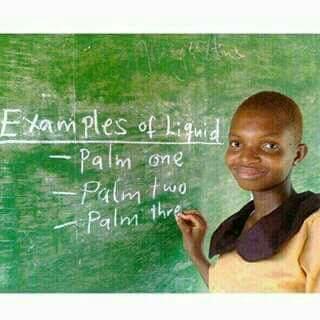 Examples of Liquid
- Palm one
- Palm two
- Palm thre